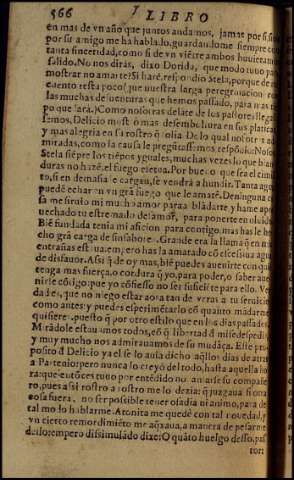 566 LIBRO
en mas de vn año que juntos andamos, jamas por si si
por su amigo me ha hablado, guardandome siempre con
tanta sinceridad, como si de vn viētre ambos huuieramos
salido. No nos dirás, dixo Dorida, que modo tuuo para
mostrar no amarte? Si haré, respondio Stela, porque de
cuento resta poco, que nuestra larga peregrinacion
las muchas desuenturas que hemos passado, para mas
po que será. Como nosotras delāte de los pastores llega
semos, Delicio mostró mas desemboltura en sus platicas
y mas alegria en su rostro q̄ solia. De lo qual nosotras ad
miradas, como la causa le preguntassemos, respōdio: No
Stela siēpre los tiēpos yguales, muchas vezes lo que bla
duras no hazē, el fuego
to, si en demasia le cargas, se vendrá a hundir. Tanta agua
puedē echar en vn grā fuego que le amate. De ninguna
sa me siruio mi mucho amor para ablādarte, y hame apro
uechado tu estremado desamor, para ponerte en oluido
Biē fundada tenia mi aficion para contigo, mas has le he
cho grā carga de sinsabores. Grande era la llama q̄ en mis
entrañas estaua, empero has la amatado cō excessiua agua
de disfauor. Assi q̄ de oy mas, biē puedes auenirte con quiē
tenga mas fuerça, o cordura q̄ yo, para poder, o saber
le codigo: que yo cōfiesso no ser suficiēte para ello.
dad es, que no niego estar aora tan de veras a tu seruicio
como antes: y puedes esperimētarlo cō quanto mādarme
quisieres, puesto q̄ por otro estilo que en los dias passados
Mirādole estauamos todos, cō q̄ libertad d̄ mi se despedia
y muy mucho nos admirauamos de su mudāça. Este pro
posito d̄ Delicio ya el se lo auia dicho aq̄llos dias de atras
a Partenio, pero nunca lo creyó del todo, hasta aquella ho
ra: que entōces tuuo por entēdido no amarse su compañe
ro, pues a si rostro a rostro me lo dezia: q̄ juzgaua si otra
cosa fuera, no ser possible tener osadia ni animo, para de
tal modo hablarme. Atonita me quedé con tal nouedad, y
vn cierto remordimiēto me
dello: empero dissimulādo dixe: O quāto huelgo desso, pas
tor: